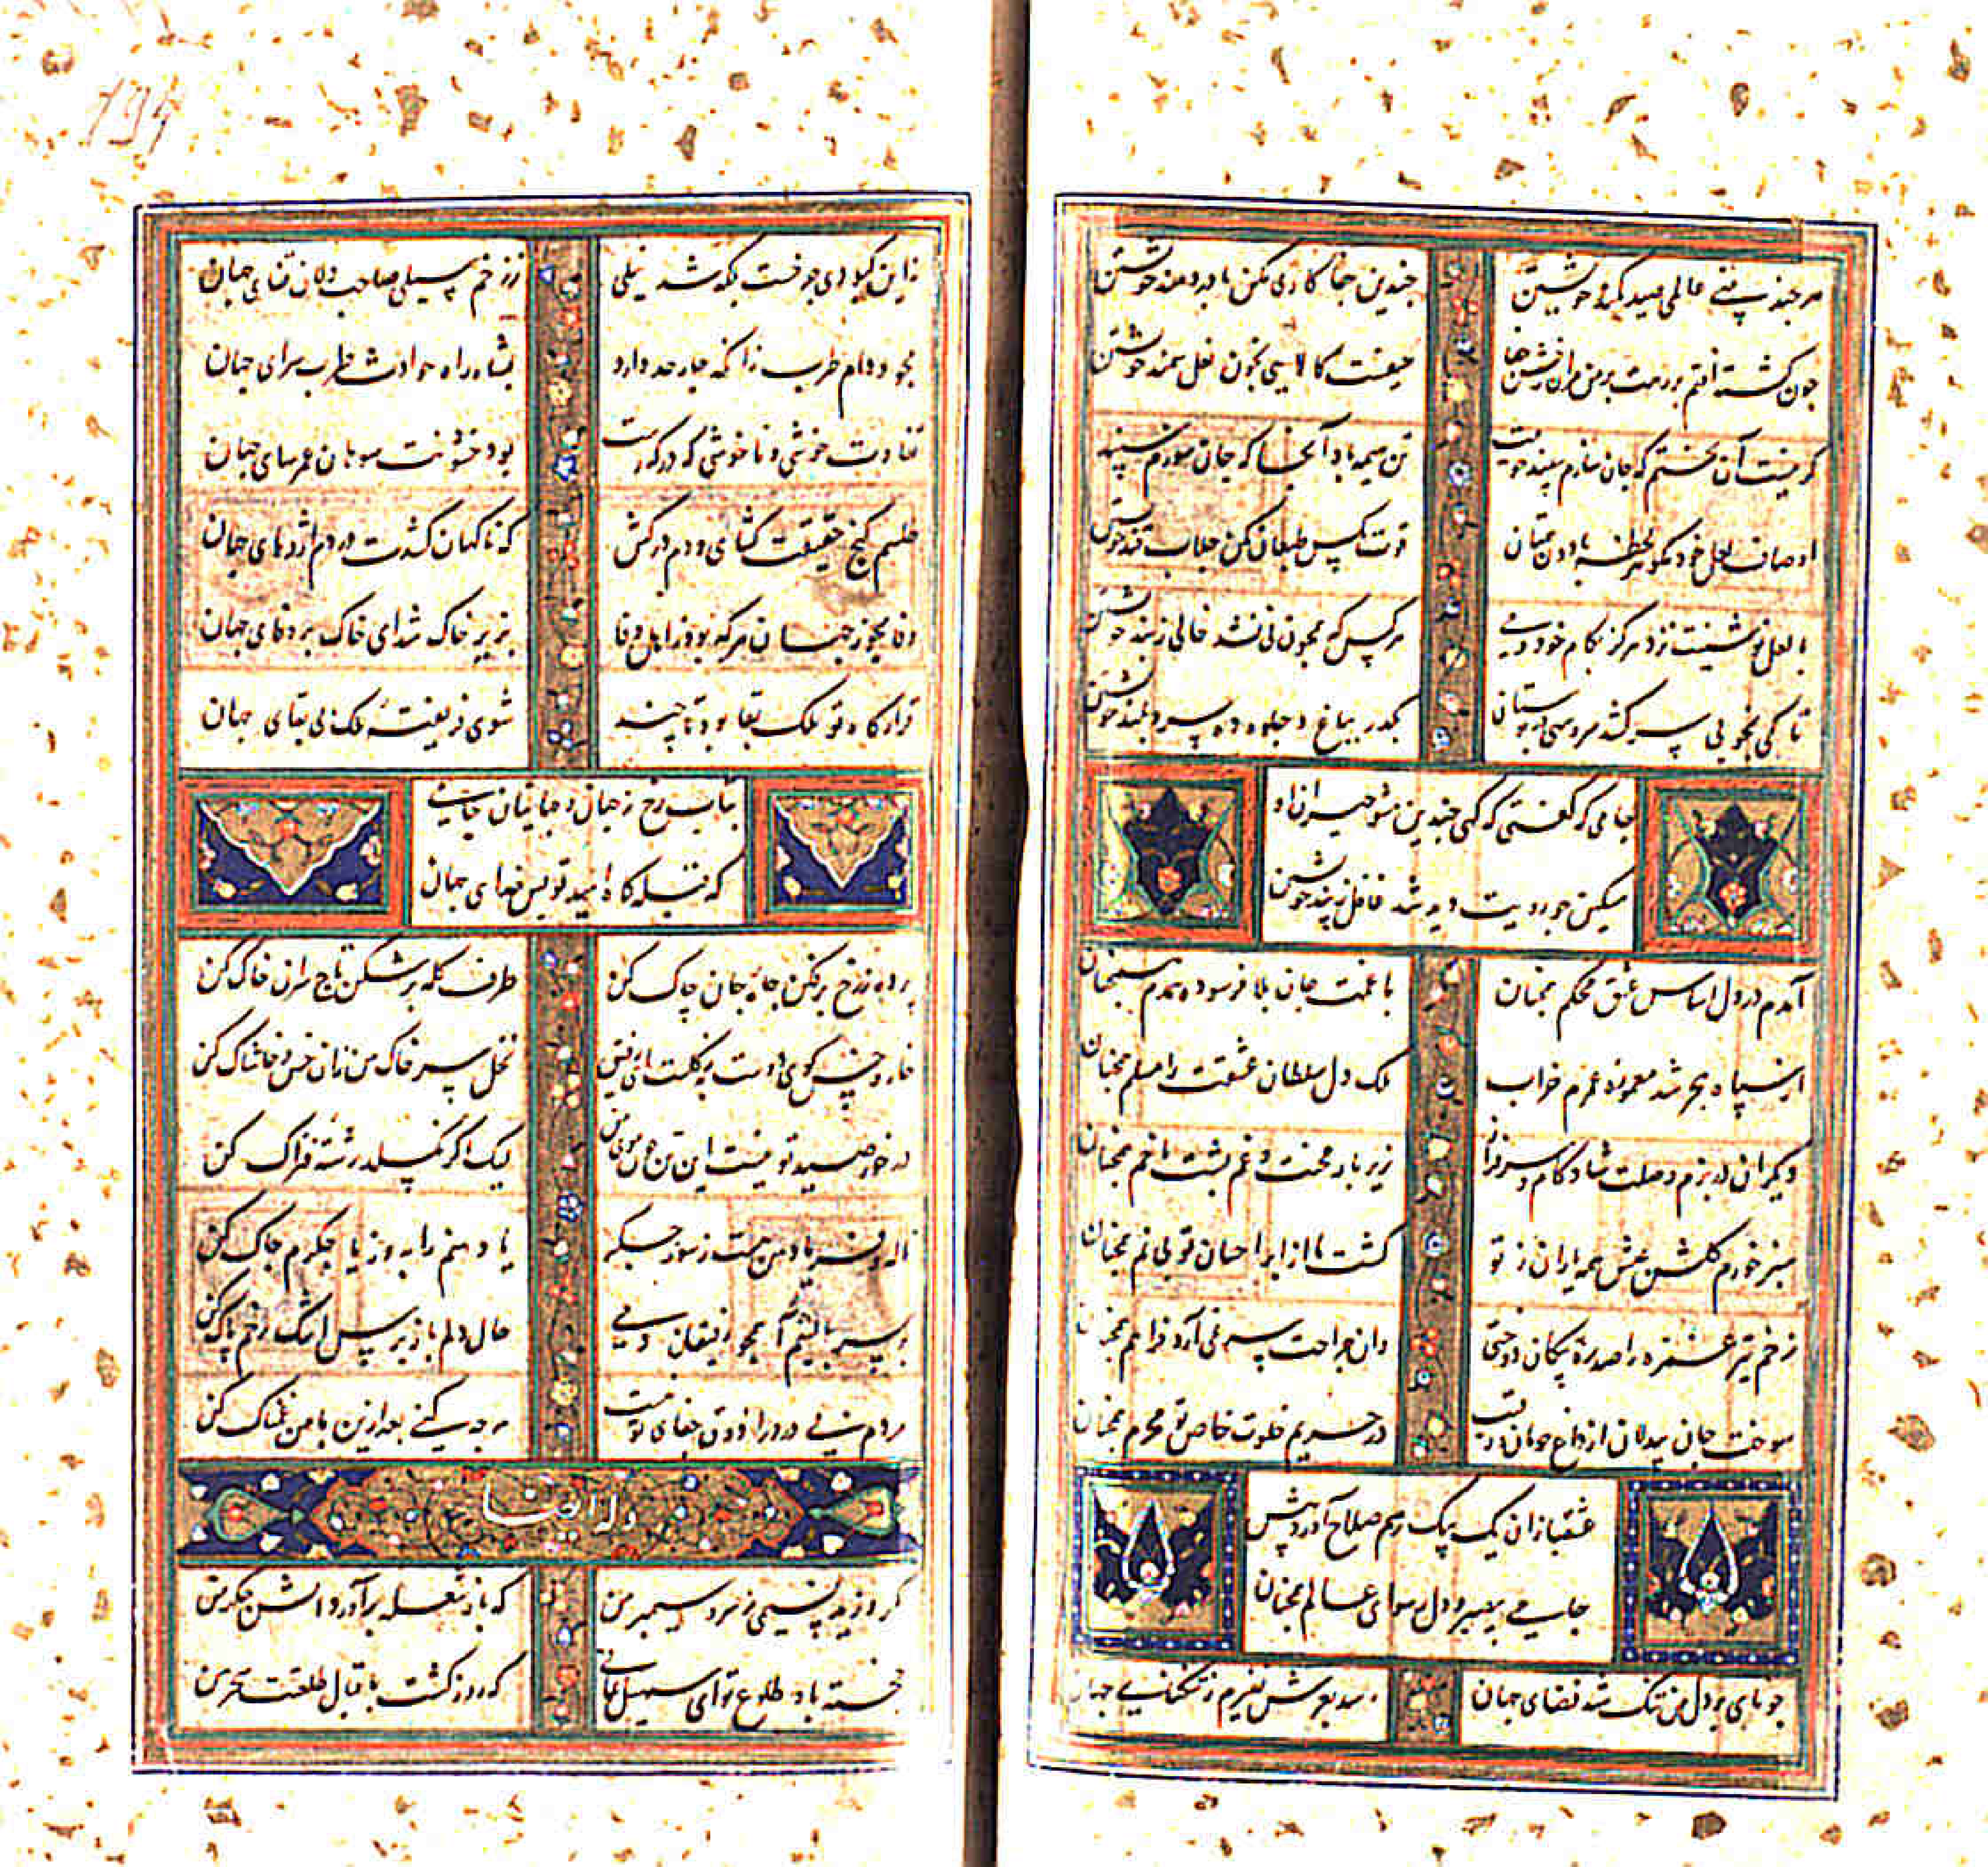 هر چند بینی عالمی صید کمند خویشتن
چندین جفا کاری مکن با دردمند خویشتن
چون کشته افتم بر رهت بر من مران رخش جفا
حیفست کالایی بخون نعل سمند خویشتن
گر نیست آن بختم که جان سازم سپند خویشت
تن هیمه باد آنجا که جان سوزم سپند
اوصاف لعل خود مگو هر لحظه با دون همتان
قوت مگس طبعان مکن جلاب قند خویشتن
با لعل نوشینت نزد هرگز بکام خود دمی
هر کس که همچون نی نشد خالی ز بند خویشتن
تا کی بخوبی سر کشد سرو سهی در بوستان
بگذر بباغ و جلوه ده سرو بلند خویشتن
جامی که گفتی که کهی چندین مشو حیران او
مسکین چو رویت دیده شد غافل ز پند خویشتن
آمدم در دل اساس عشق محکم همچنان
با غمت جان بلا فرسوده همدم همچنان
از سپاه هجر شد معموره عمرم خراب
ملک دل سلطان عشقت را مسلم همچنان
دیگران در بزم وصلت شادکام و سرفراز
زیر بار محنت و غم پشت ما خم همچنان
سبز و خرم گلشن عیش همه یاران ز تو
کشت ما از ابر احسان تو بی نم همچنان
زخم تیر غمزه را صد ره بپیکان دوختی
وان جراحت سر نمی آرد فراهم همچنان
سوخت جان بیدلان از داغ حرمان و رقیب
در حریم خلوت خاص تو محرم همچنان
عشقبازان یک بیک رسم صلاح آورد پیش
جامی بی صبر و دل رسوای عالم همچنان
چو نای بر دل من تنگ شد فضای جهان
رسد بعرش نفیرم ز تنگنای جهان
ازین کبودی چرخست بلکه شد نیلی
ز زخم سیلی صاحب دلان قفای جهان
مجو دوام طرب زانکه چار حد دارد
بشاهراه حوادث طرب سرای جهان
تفاوت خوشی و ناخوشی که در گذرست
بود خشونت سوهان عمرسای جهان
طلسم گنج حقیقت گشای و دم درکش
که ناگهان کشدت در دم اژدهای جهان
وفا مجو ز جهان هر که بود ز اهل وفا
بزیر خاک شد ای خاک بر وفای جهان
قرارگاه تو ملک بقا بود تا چند
شوی فریفته ملک بی بقای جهان
بتاب رخ ز جهان و جهانیان جامی
که قبله گاه امید تو بس خدای جهان
پرده ز رخ برفکن جامه جان چاک کن
طرف کله بر شکن تاج سران خاک کن
خار و خس کوی دوست به ز گلست ای رفیق
نخل سر خاک من زان خس و خاشاک کن
در خور صید تو نیست این تن چون موی من
لیک اگر بگسلد رشته فتراک کن
ناله و فریاد من هست ز سوز جگر
یا دهنم را بدوز یا جگرم چاک کن
بر سر بالینم آ همچو رفیقان دمی
حال دلم باز پرس اشک رخم پاک کن
مردم بی درد را ذوق جفای تو نیست
هر چه کنی بعد ازین با من غمناک کن
وله ایضا
که باز شعله برآورد آتش جگر من
خجسته باد طلوع تو ای سهیل یمانی
که روز گشت باقبال طلعتت سحر من